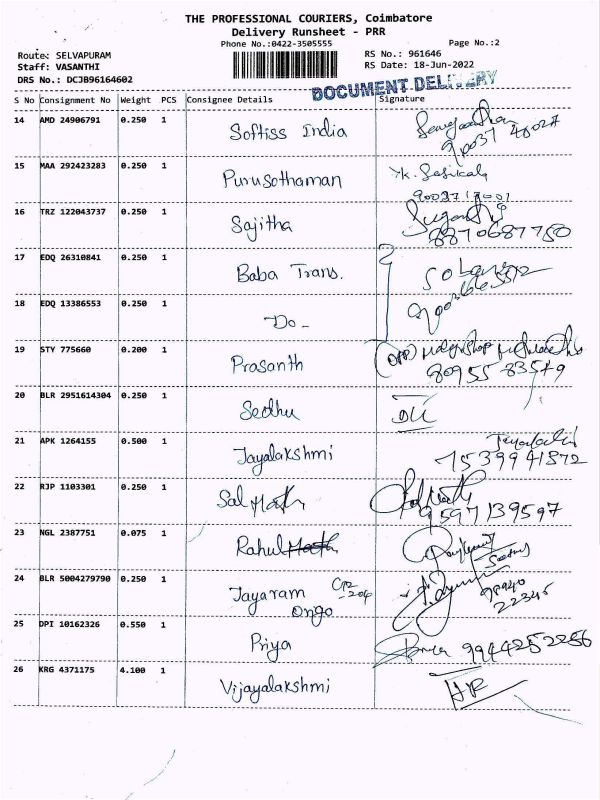 THE PROFESSIONAL COURIERS, Coimbatore
Delivery Runsheet - PRR
Phone No.:0422-3505555 Page No.:2
Route: SELVAPURAM RS No.: 961646
Staff: VASANTHI RS Date: 18-Jun-2022
DRS No.: DCJB96164602
DOCUMENT DELIVERY
S No Consignment No Weight PCS Consignee Details Signature
14 AMD 24906791 0.250 1 Softiss India
15 MAA 292423283 0.250 1 Purusothaman
16 TRZ 122043737 0.250 1 Sajitha
8870687750
17 EDQ 26310841 0.250 1 Baba Trans.
18 EDQ 13386553 0.250 1 Do-
19 STY 775660 0.200 1 Prasanth
80955 83579
20 BLR 2951614304 0.250 1 Sedhu
21 APK 1264155 0.500 1 Jayalakshmi
7539941872
22 RJP 1103301 0.250 1 Sal
9597139597
23 NGL 2387751 0.075 1 Rahul
24 BLR 5004279790 0.250 1 Jayaram
ongo
22345
25 DPI 10162326 0.550 1 Priya 9944252286
26 KRG 4371175 4.100 1 Vijayalakshmi